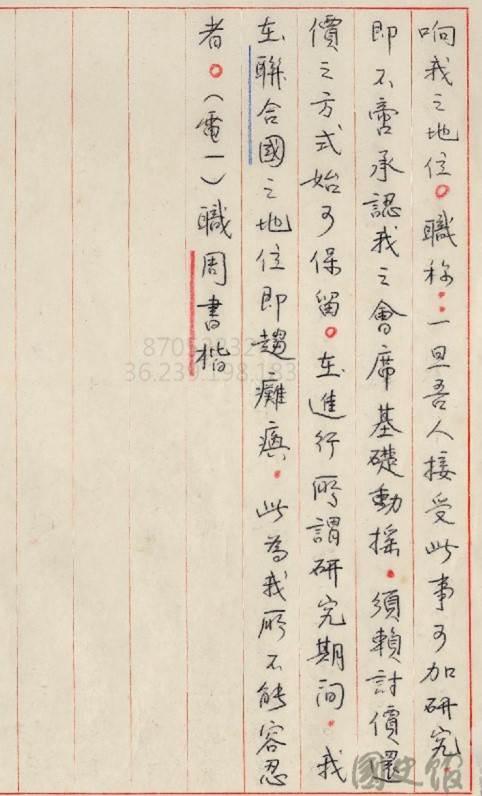 响我之地位。職称：一旦吾人接受此事可加研究，
即不啻承認我之會席基礎動搖，須賴討價還
價之方式始可保留。在進行所謂研究期間，我
在聯合國之地位即趨癱瘓，此為我所不能容忍
者。（電一）職周書楷
36.239.198.183
國史館